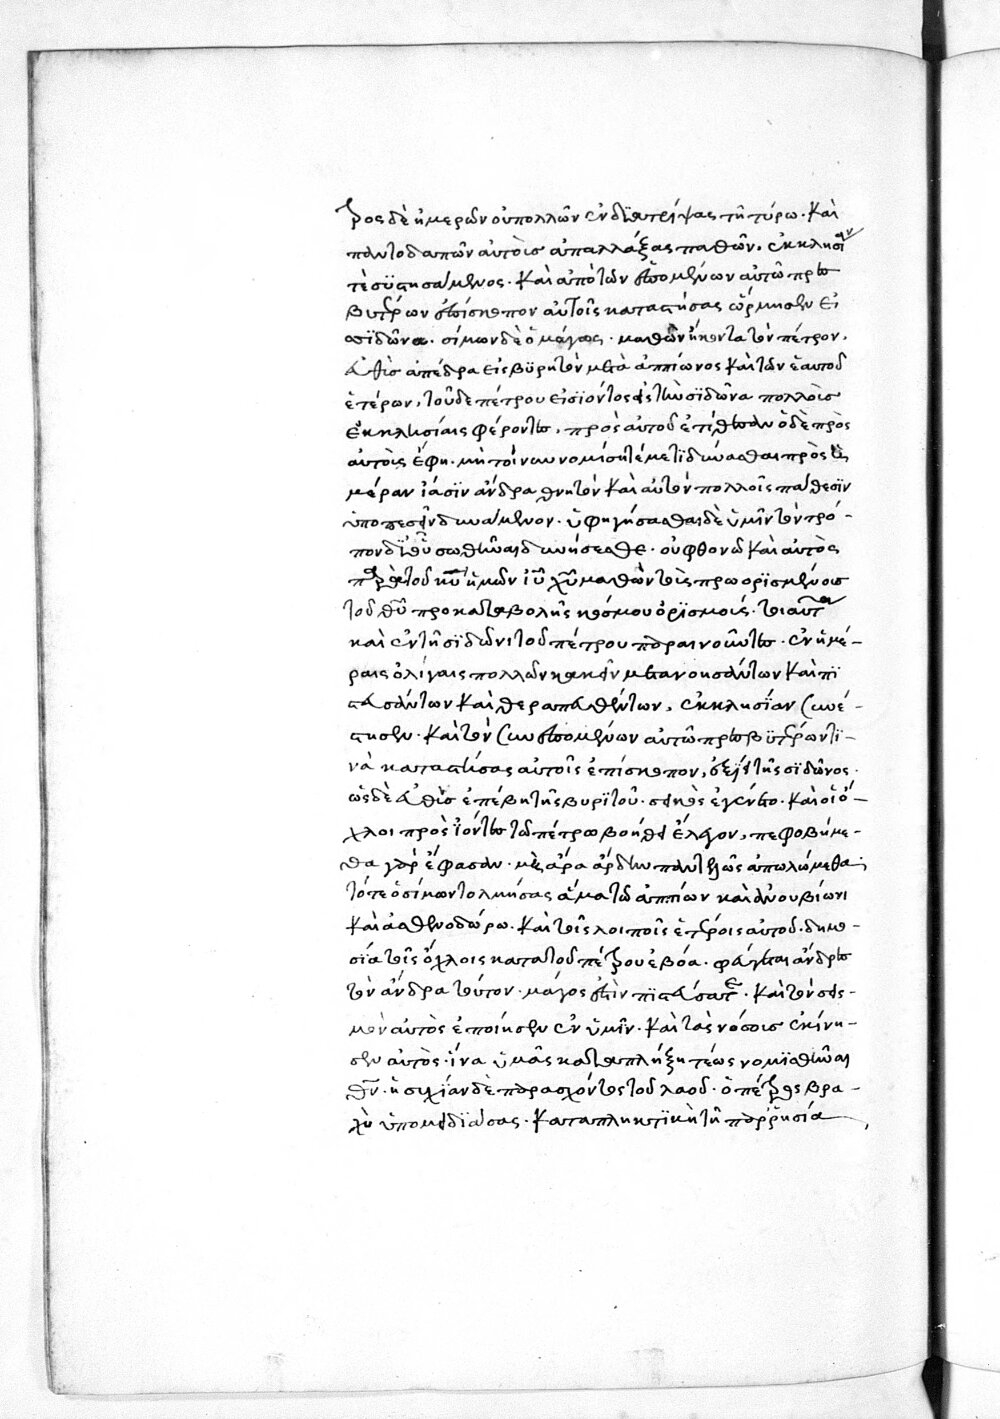 τρος δὲ ἡμερῶν οὐ πολλῶν ἐνδϊατρίψας τῇ τύρω· καὶ
παντοδαπῶν αὐτοὺς ἀπαλλάξας παθῶν. ἐκκλησίαν
τὲ συστησάμενος· καὶ ἀπὸ τῶν ἑπομένων αὐτῶ πρεσ
βυτέρων ἐπίσκοπον αὐτοῖς καταστήσας ὥρμησεν εἰ
σϊδῶνα· σίμων δὲ ὁ μάγος· μαθὼν ἥκοντα τὸν πέτρον.
εὐθὺς ἀπέδρα εἰς βϋρητὸν μετὰ ἀππίωνος καὶ τῶν ἑαυτοῦ
ἑτέρων. τοῦ δὲ πέτρου εἰσϊόντος εἰς τὴν σϊδῶνα πολλοὺς
φέροντες. πρὸς αὐτοῦ ἐτίθεσαν ὁ δὲ πρὸς
αὐτοὺς ἔφη. μὴ τοίνυν νομίσητέ με τϊ δύνασθαι πρὸς
ἰᾶσϊν ἄνδρα θνητὸν καὶ αὐτὸν πολλοῖς πάθεσϊν
ὑποπεσεῖν δυνάμενον· ὑφηγήσασθαι δὲ ὑμῖν τὸν τρό-
πον δϊ οὗ σωθῆναι δυνήσεσθε· οὐ φθονῶ καὶ αὐτὸς
παρὰ τοῦ κυ ἡμῶν ιυ χυ μαθὼν τοὺς προορϊσμένους
τοῦ θυ πρὸ καταβολῆς κόσμου ὁρϊσμούς· τοιαῦτα
καὶ ἐν τῇ σϊδῶνι τοῦ πέτρου παραινοῦντος. ἐν ἡμέ-
ραις ὀλίγαις πολλῶν κἀκεῖ μετανοησάντων καὶ πϊ
στευσάντων καὶ θεραπευθέντων. ἐκκλησίαν συνέ-
στησεν· καὶ τὸν συνεπομένων αὐτῶ πρεσβϋτέρων τϊ-
νὰ καταστήσας αὐτοῖς ἐπίσκοπον, ἐξῄει τῆς σϊδῶνος·
ὡς δὲ εὐθὺς ἐπέβη τῆς βυρϊτοῦ· σεισμὸς ἐγένετο· καὶ οἱ ὄ-
χλοι προσϊόντες τῶ πέτρω βοήθει ἔλεγον, πεφοβήμε-
θα γὰρ ἔφασαν· μὴ ἄρα ἄρδην παντελῶς ἀπολώμεθα·
τότε ὁ σίμων τολμήσας ἅμα τῶ ἀππίων καὶ ἀνουβίωνι
καὶ ἀθηνοδώρω. καὶ τοῖς λοιποῖς ἑτέροις αὐτοῦ· δημο-
σία τοῖς ὄχλοις κατὰ τοῦ πέτρου ἐβόα· φεύγεται ἄνδρες
τὸν ἄνδρα τοῦτον· μάγος ἐστὶν πϊστεύσατε· καὶ τὸν σεισ-
μὸν αὐτὸς ἐποίησεν ἐν ὑμῖν· καὶ τὰς νόσους ἐκίνη-
σεν αὐτὸς· ἵνα ὑμᾶς καταπλήξη τέως νομϊσθῆναι
θν· ἡσυχίαν δὲ παρασχόντες τοῦ λαοῦ· ὁ πέτρος βρα-
χὺ ὑπομειδϊάσας· καταπληκτϊκῆ τῇ παρρησία